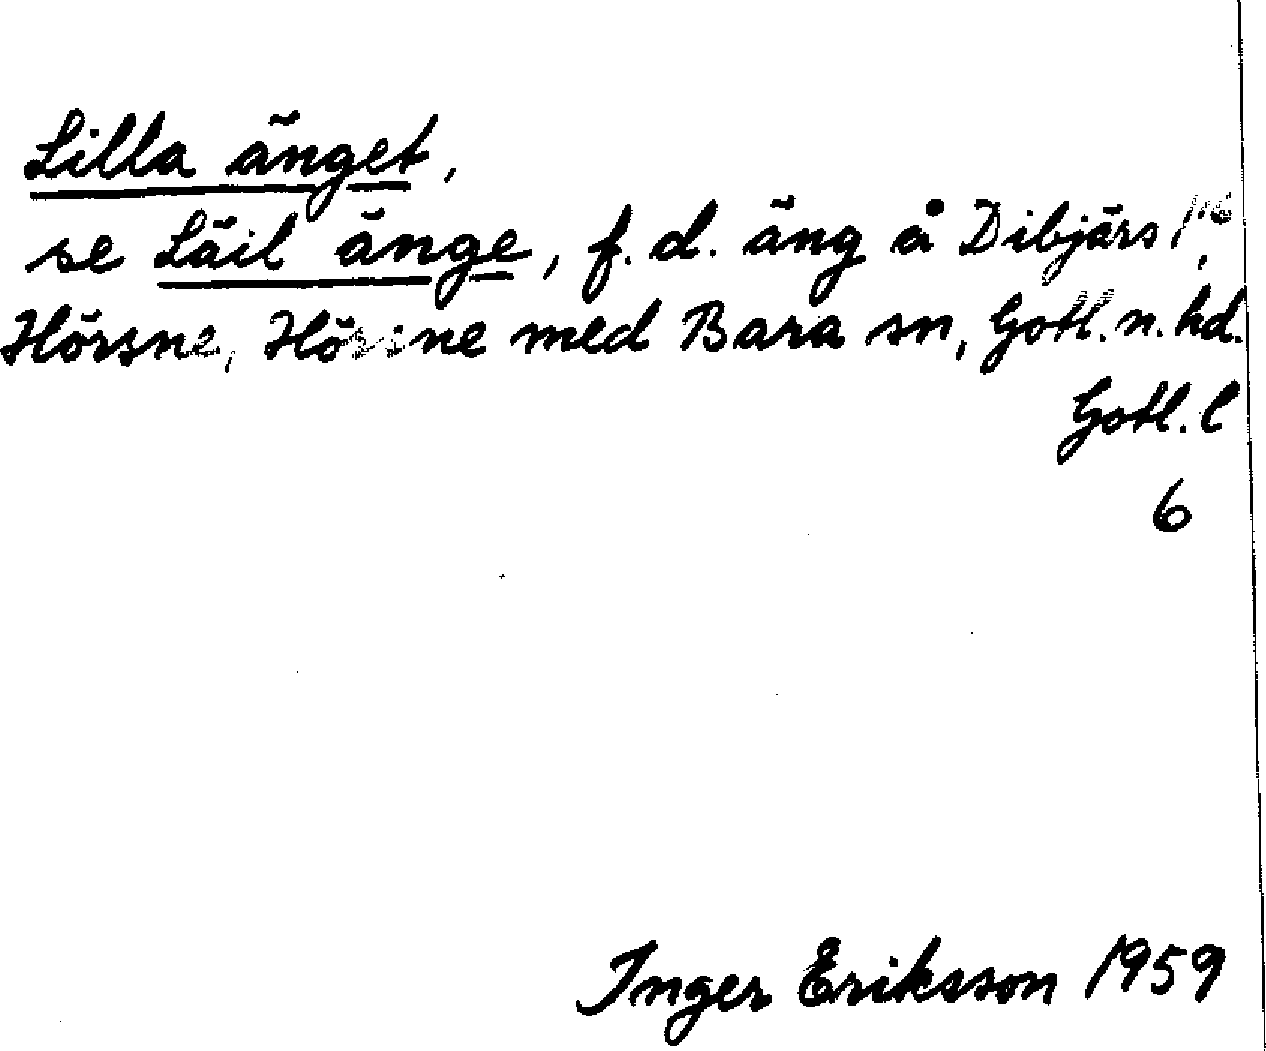 Lilla änget,
se Läil änge, f.d. äng å Dibjärs 1¹⁶,
Hörsne, Hörsne med Bara sn, Gotl. n. hd.
Gotl. l
6
Inger Eriksson 1959